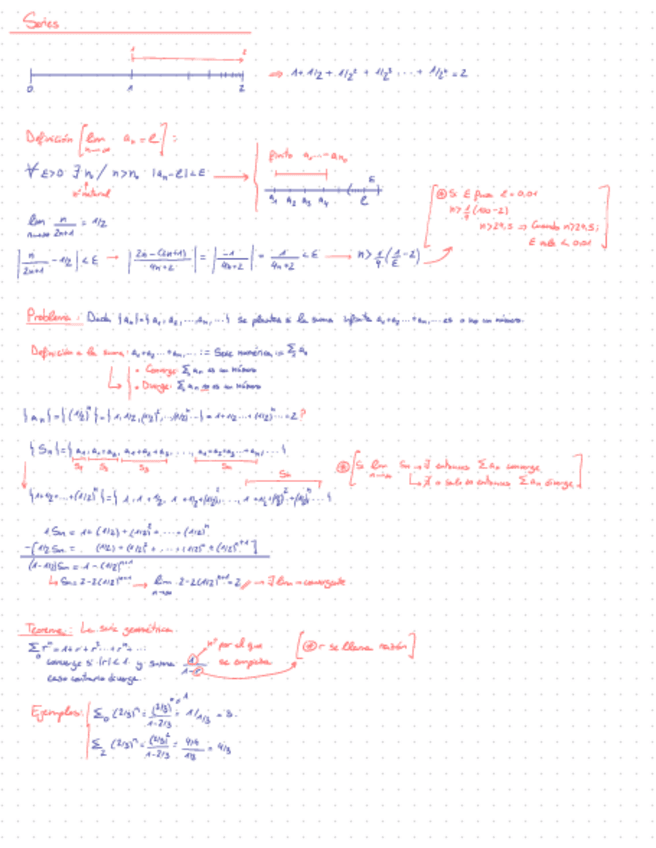 Series
1 2
0 1 2
⇒ 1 + 1/2 + 1/2² + 1/2³ ... + 1/2ⁿ = 2
Definición [lim n→∞ aₙ = l] :
∀ ε>0 ∃ n₀ / n>n₀ |aₙ-l|<ε →
nº natural
finito a₁...aₙ₀
a₁ a₂ a₃ a₄ l ε
lim n→∞ n/(2n+1) = 1/2
|n/(2n+1) - 1/2| < ε → |(2n-(2n+1))/(4n+2)| = |-1/(4n+2)| = 1/(4n+2) < ε → n > 1/4 (1/ε - 2)
[* Si ε fuese = 0,01
n > 1/4 (100-2)
n > 24,5 ⇒ Cuando n > 24,5;
ε < 0,01]
Problema: Dada {aₙ} = {a₁, a₂, ..., aₙ, ...} se plantea si la suma infinita a₁+a₂...+aₙ,... es o no un número.
Definición a la suma: a₁+a₂...+aₙ,... := Serie numérica := Σ aₙ
• Converge: Σ aₙ es un número
• Diverge: Σ aₙ no es un número
{aₙ} = {(1/2)ⁿ} = {1, 1/2, (1/2)², ...(1/2)ⁿ...} = 1+1/2...+(1/2)ⁿ... = 2?
{Sₙ} = {a₁, a₁+a₂, a₁+a₂+a₃, ..., a₁+a₂+a₃...+aₙ, ...}
S₁ S₂ S₃ Sₙ
[* Si lim n→∞ Sₙ → ∃ entonces Σ aₙ converge
↳ ∄ o sale ∞ entonces Σ aₙ diverge]
Sₙ
{1+1/2+...+(1/2)ⁿ} = {1, 1+1/2, 1+1/2+(1/2)², ..., 1+1/2+(1/2)²...+(1/2)ⁿ...}
1Sₙ = 1+(1/2)+(1/2)²+...+(1/2)ⁿ
-[1/2 Sₙ = (1/2)+(1/2)²+...+(1/2)ⁿ+(1/2)ⁿ⁺¹]
(1-1/2)Sₙ = 1-(1/2)ⁿ⁺¹
↳ Sₙ = 2-2(1/2)ⁿ⁺¹ → lim n→∞ 2-2(1/2)ⁿ⁺¹ = 2 → ∃ lim → convergente
Teorema: La serie geométrica.
Σ₀ rⁿ = 1+r+r²...+rⁿ+...
converge si |r|<1 y suma 1/(1-r)
caso contrario diverge.
nº por el que se empieza
[* r se llama razón]
Ejemplos: Σ₀ (2/3)ⁿ = (2/3)⁰/(1-2/3) = 1/1/3 = 3.
Σ₂ (2/3)ⁿ = (2/3)²/(1-2/3) = 4/9/1/3 = 4/3